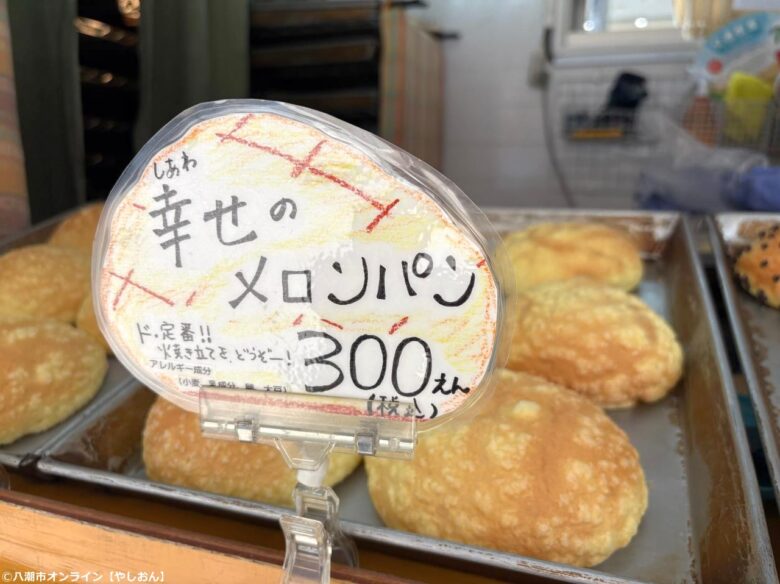 しあわ
幸せの
メロンパン
ド・定番!!
焼き立てを どうぞー!
アレルギー成分
300えん
(税込)
©八潮市オンライン【やしおん】